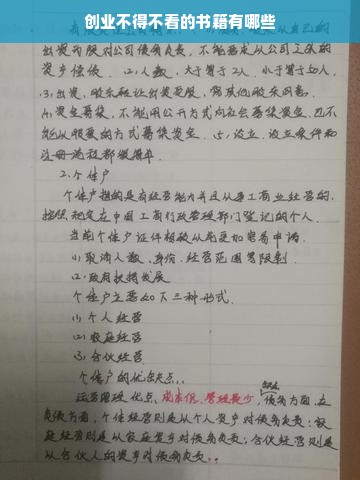 创业不得不看的书籍有哪些
出资形股对公司债务负责，不能要求从公司之类的
资产偿债。(2)人数，大于等于2人，小于等于50人，
(3)出资，股东转让出资变股，需其他股东同意。
(4)资金募集，不能用公开方式向社会募集资金，也不
能从股票的方式募集资金。(5)设立，设立条件和
注册流程都很简单
2.个体户
个体户指的是有经营能力并且从事工商业经营的，
按照规定在中国工商行政管理部门登记的个人。
当前个体户证件相较从前更加容易申请。
(1)取消人数，身份，经营范围等限制。
(2)政府扶持发展
个体户主要如下三种形式。
(1)个人经营
(2)家庭经营
(3)合伙经营
个体户的优缺点：
运营管理优点，成本低，管理较少，债务方面，在
负债方面，个体经营则是从个人资产对债务负责；家
庭经营则是从家庭资产对债务负责；合伙经营则是
从合伙人的资产对债务负责。